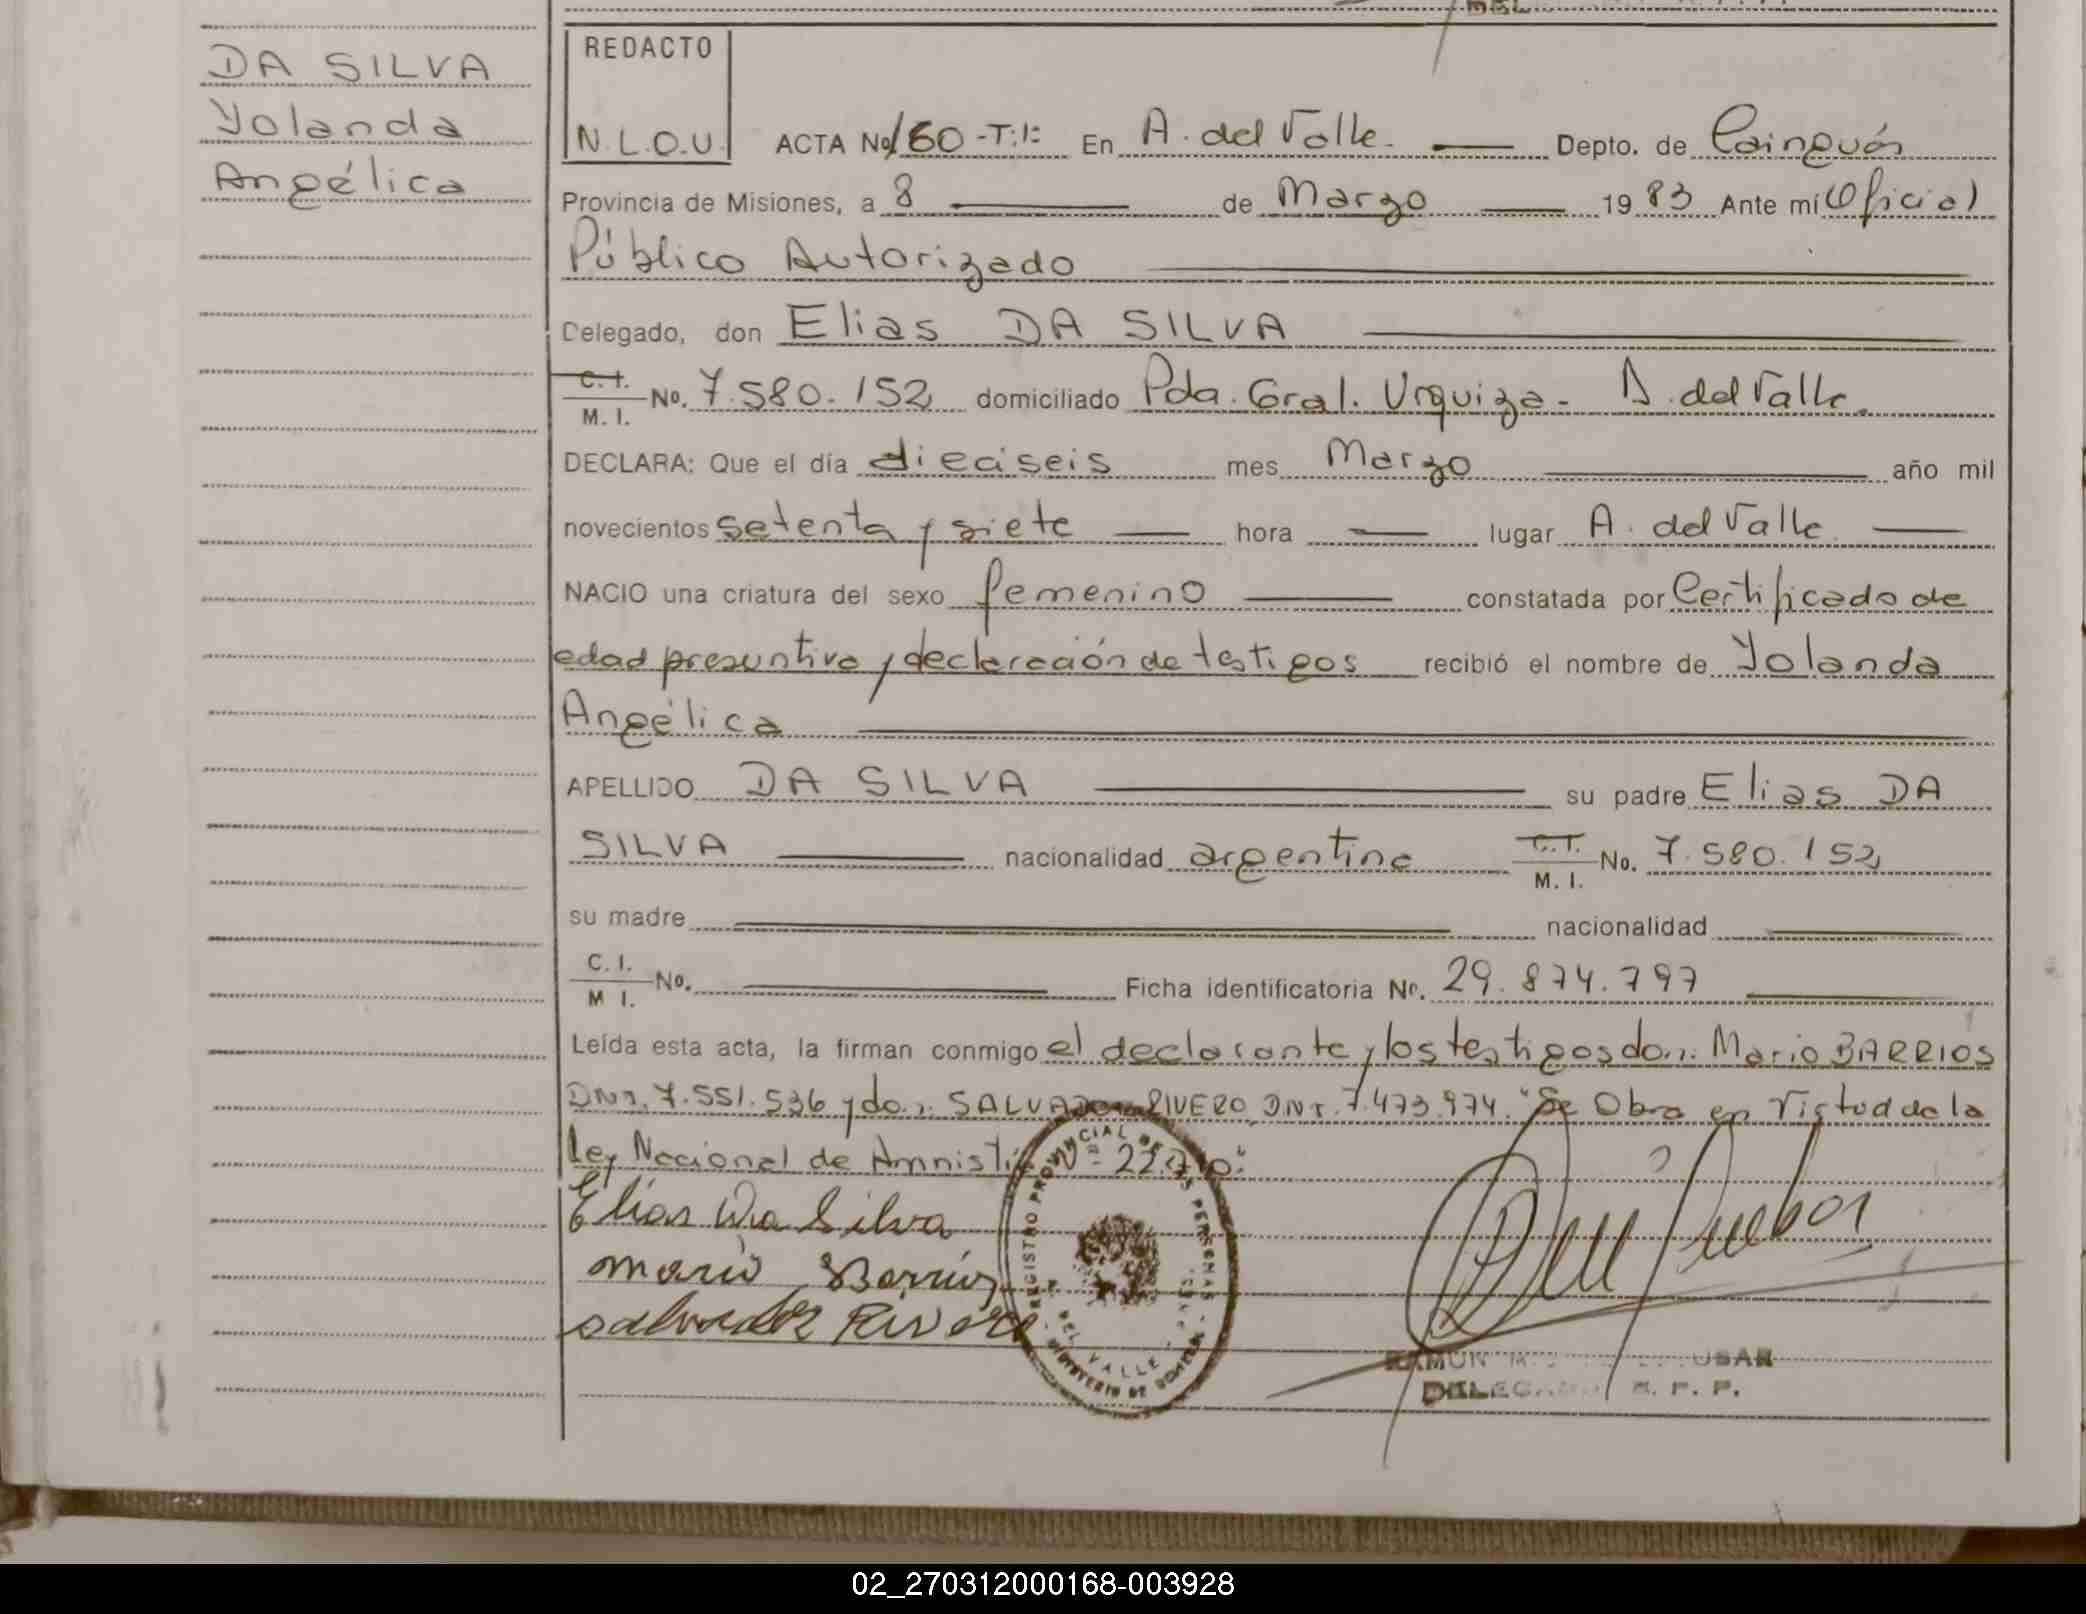 DA SILVA
Yolanda
Angélica
REDACTO
N.L.O.U.
ACTA No 160 -T:I: En A. del Valle. Depto. de Cainguás
Provincia de Misiones, a 8 de Marzo 1983 Ante mí Oficial
Público Autorizado
Delegado, don Elias DA SILVA
C.I. M. I. No. 7.580.152 domiciliado Pda. Gral. Urquiza - A. del Valle.
DECLARA: Que el día dieciseis mes Marzo año mil
novecientos setenta y siete hora lugar A. del Valle
NACIO una criatura del sexo femenino constatada por Certificado de
edad presuntiva y declaración de testigos recibió el nombre de Yolanda
Angélica
APELLIDO DA SILVA su padre Elias DA
SILVA nacionalidad argentina C.I. M. I. No. 7.580.152
su madre nacionalidad
C. I. M I. No. Ficha identificatoria No. 29.874.797
Leída esta acta, la firman conmigo el declarante y los testigos don: Mario BARRIOS
DNI. 7.551.536 y don: SALVADOR RIVERO DNI. 7.473.974. "Se Obra en Virtud de la
Ley Nacional de Amnistía Nº
Elias Da Silva
Mario Barrios
Salvador Rivero
REGISTRO PROVINCIAL DE LAS PERSONAS
DEL VALLE
MINISTERIO DE
RAMON
DELEGADO R. P. P.
02_270312000168-003928